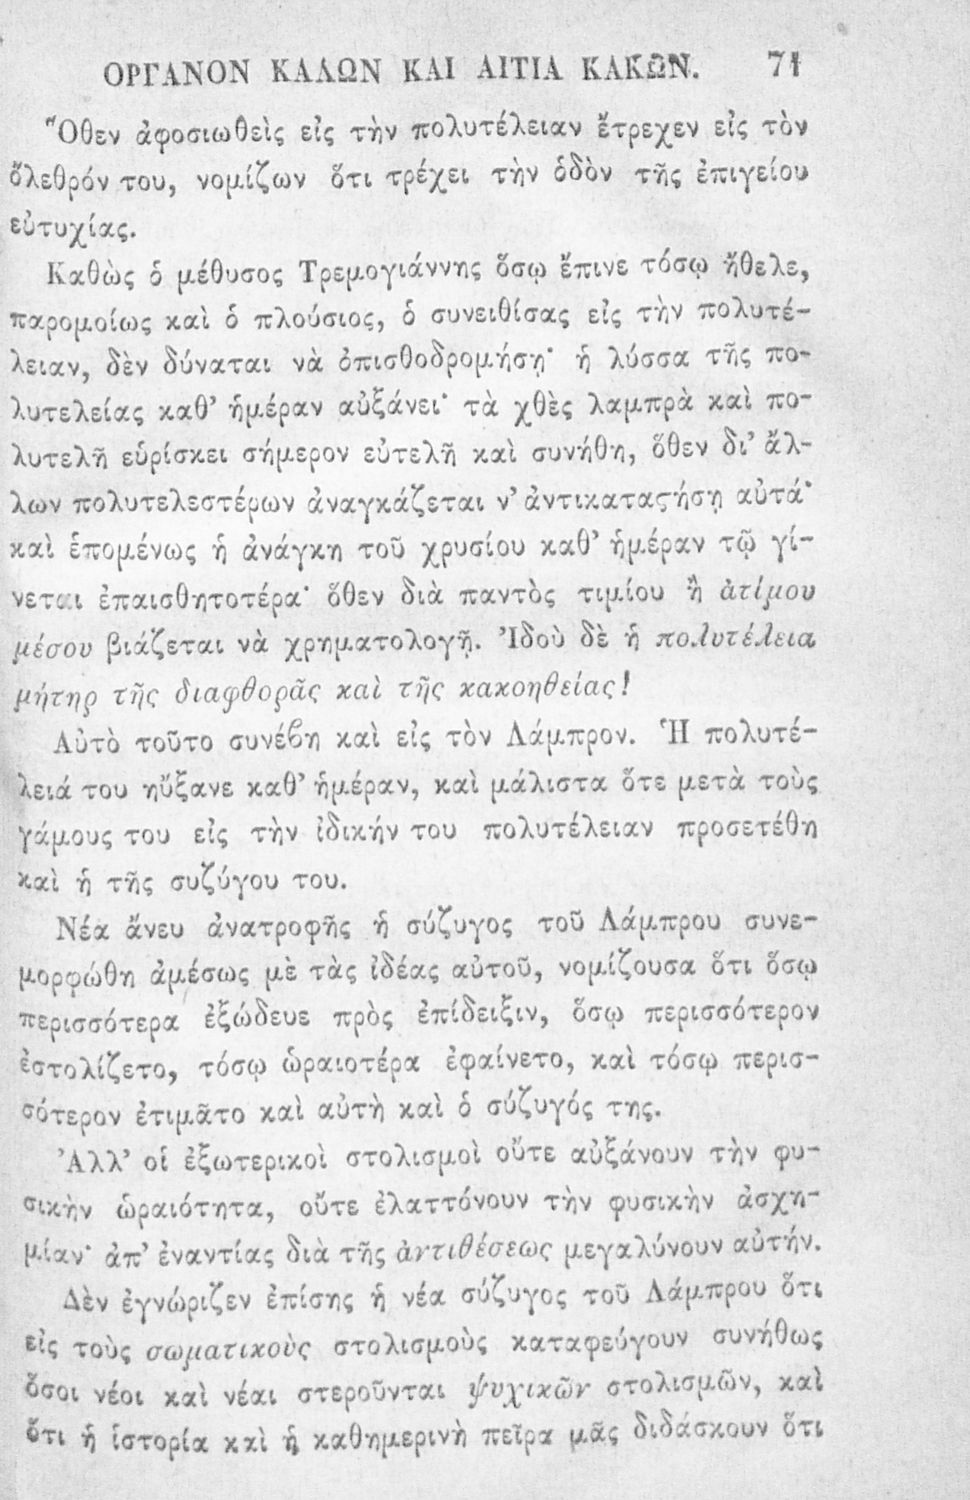 ΟΡΓΑΝΟΝ ΚΑΛΩΝ ΚΑΙ ΑΙΤΙΑ ΚΑΚΩΝ. 71
Ὅθεν ἀφοσιωθεὶς εἰς τὴν πολυτέλειαν ἔτρεχεν εἰς τὸν
ὄλεθρόν του, νομίζων ὅτι τρέχει τὴν ὁδὸν τῆς ἐπιγείου
εὐτυχίας.
Καθὼς ὁ μέθυσος Τρεμογιάννης ὅσῳ ἔπινε τόσῳ ἤθελε,
παρομοίως καὶ ὁ πλούσιος, ὁ συνειθίσας εἰς τὴν πολυτέ-
λειαν, δὲν δύναται νὰ ὀπισθοδρομήσῃ· ἡ λύσσα τῆς πο-
λυτελείας καθ’ ἡμέραν αὐξάνει· τὰ χθὲς λαμπρὰ καὶ πο-
λυτελῆ εὑρίσκει σήμερον εὐτελῆ καὶ συνήθη, ὅθεν δι’ ἄλ-
λων πολυτελεστέρων ἀναγκάζεται ν’ ἀντικαταςήσῃ αὐτά·
καὶ ἑπομένως ἡ ἀνάγκη τοῦ χρυσίου καθ’ ἡμέραν τῷ γί-
νεται ἐπαισθητοτέρα· ὅθεν διὰ παντὸς τιμίου ἢ ἀτίμου
μέσου βιάζεται νὰ χρηματολογῇ. Ἰδοὺ δὲ ἡ πολυτέλεια
μήτηρ τῆς διαφθορᾶς καὶ τῆς κακοηθείας!
Αὐτὸ τοῦτο συνέβη καὶ εἰς τὸν Λάμπρον. Ἡ πολυτέ-
λειά του ηὔξανε καθ’ ἡμέραν, καὶ μάλιστα ὅτε μετὰ τοὺς
γάμους του εἰς τὴν ἰδικήν του πολυτέλειαν προσετέθη
καὶ ἡ τῆς συζύγου του.
Νέα ἄνευ ἀνατροφῆς ἡ σύζυγος τοῦ Λάμπρου συνε-
μορφώθη ἀμέσως μὲ τὰς ἰδέας αὐτοῦ, νομίζουσα ὅτι ὅσῳ
περισσότερα ἐξώδευε πρὸς ἐπίδειξιν, ὅσῳ περισσότερον
ἐστολίζετο, τόσῳ ὡραιοτέρα ἐφαίνετο, καὶ τόσῳ περισ-
σότερον ἐτιμᾶτο καὶ αὐτὴ καὶ ὁ σύζυγός της.
Ἀλλ’ οἱ ἐξωτερικοὶ στολισμοὶ οὔτε αὐξάνουν τὴν φυ-
σικὴν ὡραιότητα, οὔτε ἐλαττόνουν τὴν φυσικὴν ἀσχη-
μίαν· ἀπ’ ἐναντίας διὰ τῆς ἀντιθέσεως μεγαλύνουν αὐτήν.
Δὲν ἐγνώριζεν ἐπίσης ἡ νέα σύζυγος τοῦ Λάμπρου ὅτι
εἰς τοὺς σωματικοὺς στολισμοὺς καταφεύγουν συνήθως
ὅσοι νέοι καὶ νέαι στεροῦνται ψυχικῶν στολισμῶν, καὶ
ὅτι ἡ ἱστορία καὶ ἡ καθημερινὴ πεῖρα μᾶς διδάσκουν ὅτι